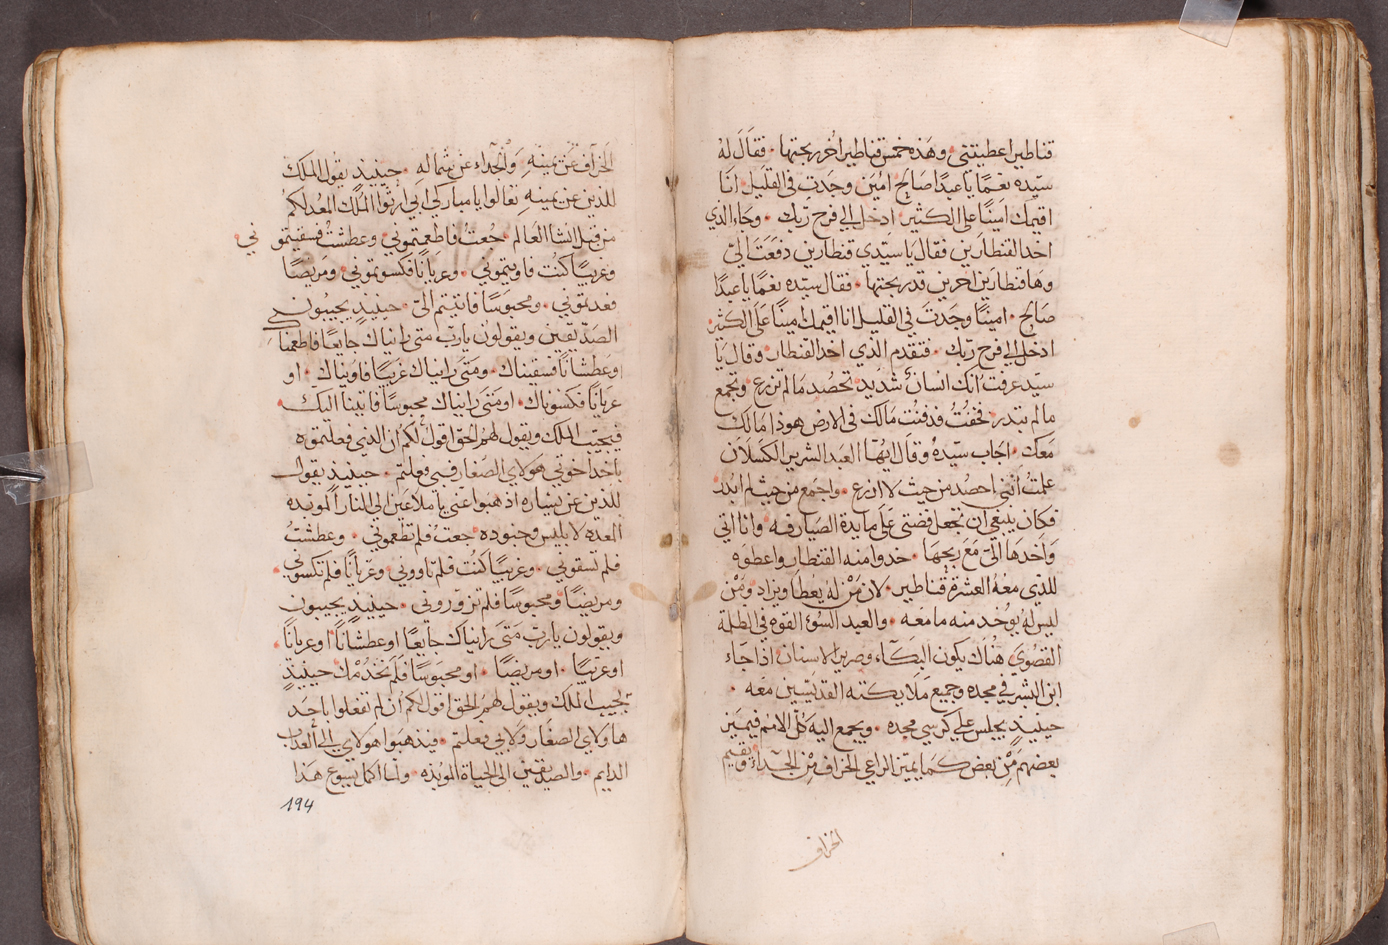 قناطير اعطيتني وهذه خمس قناطير اخر ربحتها فقال له
سيده نعمًا يا عبدًا صالح امين وجدت في القليل انا
اقيمك امينًا على الكثير ادخل الى فرح ربك وجاء الذي
اخد القنطارين فقال يا سيدي قنطارين دفعت اليّ
وها قنطارين اخرين قد ربحتها فقال سيده نعمًا يا عبدًا
صالح امينًا وجدت في القليل انا اقيمك امينًا على الكثير
ادخل الى فرح ربك فتقدم الذي اخد القنطار وقال يا
سيد عرفت انك انسان شديد تحصد ما لم تزرع وتجمع
ما لم تبدر فخفت فدفنت مالك في الارض هوذا مالك
معك اجاب سيده وقال ايها العبد الشرير الكسلان
علمت انني احصد من حيث لا ازرع واجمع من حيث لم ابدر
فكان ينبغي ان تجعل فضتي على مايدة الصيارفه وانا اتي
واخدها اليّ مع ربحها خدوا منه القنطار واعطوه
للذي معه العشرة قناطير لان من له يعطا ويزاد ومن
ليس له يوخد منه ما معه والعبد السوء القوه في الظلمة
القصوي هناك يكون البكاء وصرير الاسنان اذا جاء
ابن البشر في مجده وجميع ملايكته القديسين معه
حينيد يجلس علي كرسي مجده ويجمع اليه كل الامم فيميز
بعضهم من بعض كما يميز الراعي الخراف من الجداء ويقيم
الخراف
الخراف عن يمينه والجداء عن شماله حينيد يقول الملك
للذين عن يمينه تعالوا يا مباركي ابي ارثوا الملك المعد لكم
من قبل انشا العالم جعت فاطعمتموني وعطشت فسقيتمو ني
وغريبًا كنت فاويتموني وعريانًا فكسوتموني ومريضًا
فعدتموني ومحبوسًا فاتيتم اليّ حينيد يجيبون
الصديقين ويقولون يا رب متى رايناك جايعًا فاطعمنا
وعطشانًا فسقيناك ومتى رايناك غريبًا فاويناك او
عريانًا فكسوناك او متى رايناك محبوسًا فاتينا اليك
فيجيب الملك ويقول لهم الحق اقول لكم ان الذي فعلتموه
باحد اخوتي هولاي الصغار فبي فعلتم حينيد يقول
للذين عن يساره اذهبوا عني يا ملاعين الى النار الموبده
المعده لابليس وجنوده جعت فلم تطعموني وعطشت
فلم تسقوني وغريبًا كنت فلم تاووني وعريانًا فلم تكسوني
ومريضًا ومحبوسًا فلم تزوروني حينيد يجيبون
ويقولون يا رب متى رايناك جايعًا او عطشانًا او عريانًا
او غريبًا او مريضًا او محبوسًا فلم نخدمك حينيد
يجيب الملك ويقول لهم الحق اقول لكم ان لم تفعلوا باحد
هاولاي الصغار ولا بي فعلتم فيذهبوا هولاي الى العداب
الدايم والصديقين الى الحياة الموبده ولما اكمل يسوع هذا
194